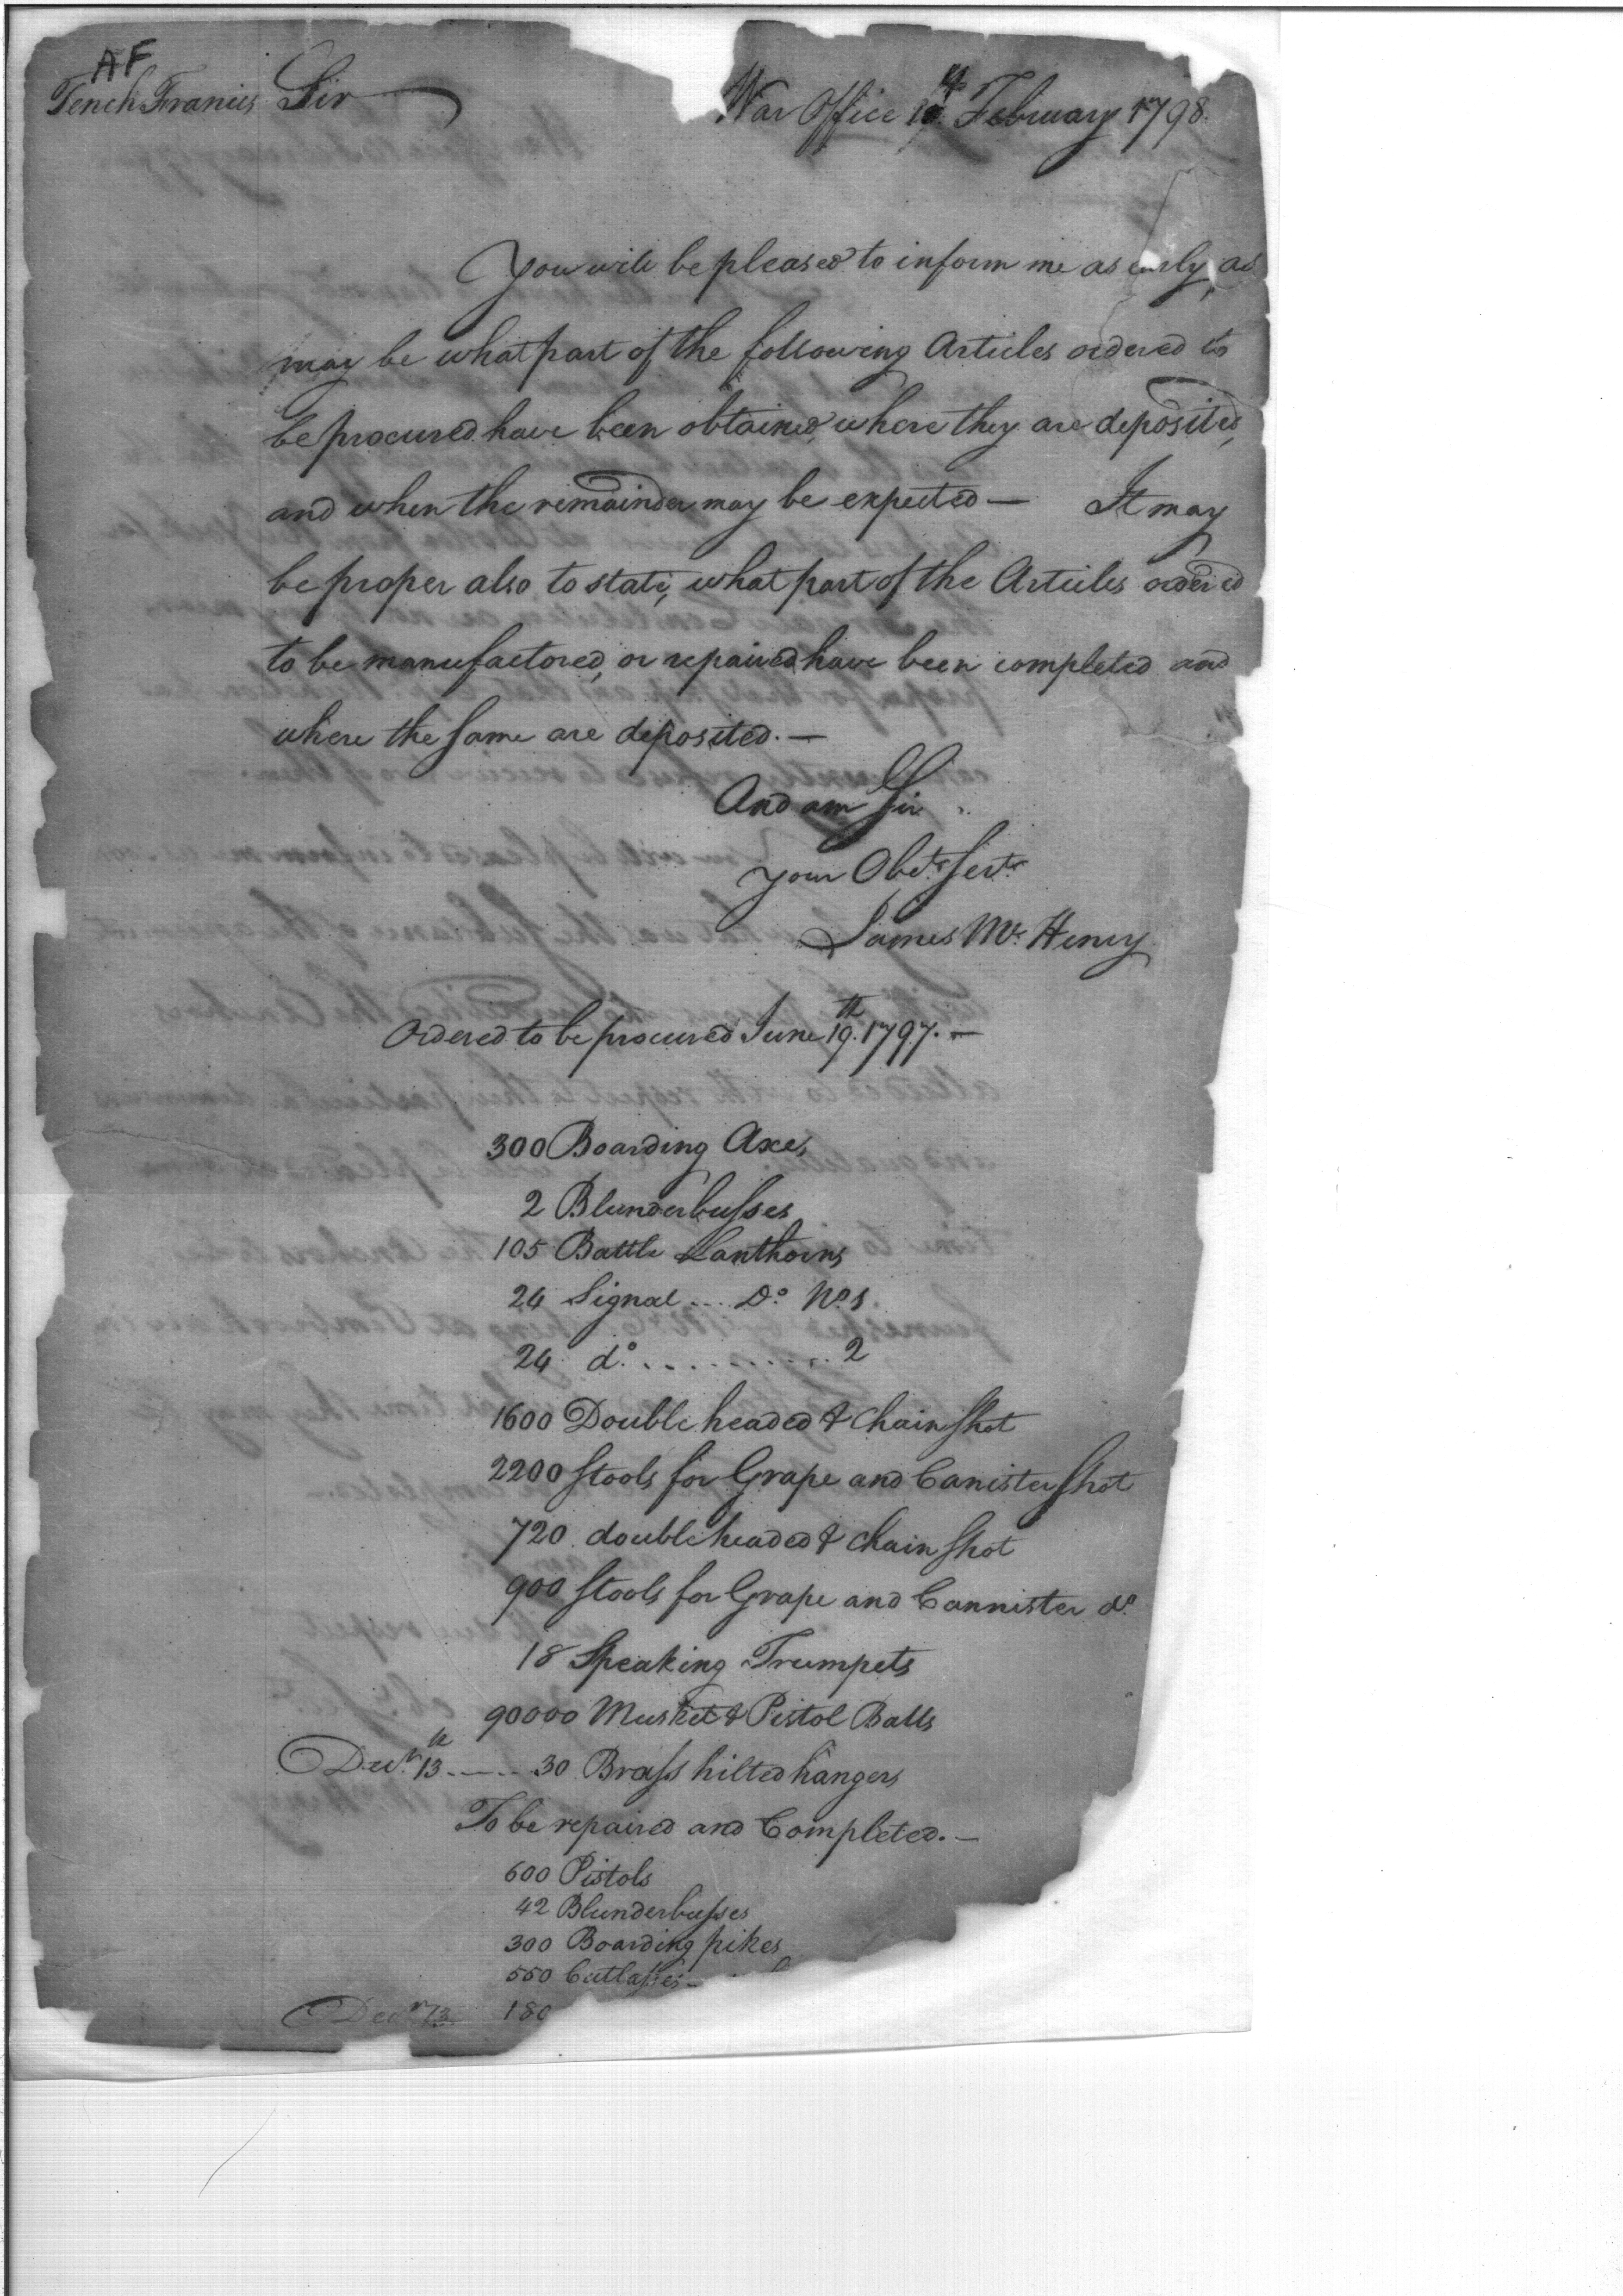 AF
Tench Francis Sir War Office 10th February 1798.
You will be pleased to inform me as early, as
may be what part of the following Articles ordered to
be procured have been obtained, where they are deposited,
and when the remainder may be expected — It may
be proper also to state, what part of the Articles ordered
to be manufactored, or repaired have been completed and
where the same are deposited. —
And am Sir
your Obdt. Servt.
James Mc. Henry
Ordered to be procured June 19th. 1797. —
300 Boarding Axes
2 Blunderbusses
105 Battle Lanthorns
24 Signal ... Do. No. 1
24 do. . . . . . . . . . . 2
1600 Double headed & Chain Shot
2200 Stools for Grape and Canister Shot
720 double headed & Chain Shot
900 Stools for Grape and Cannister do.
18 Speaking Trumpets
90000 Musket & Pistol Balls
Decr. 13th ---- 30 Brass hilted hangers
To be repaired and Completed. —
600 Pistols
42 Blunderbusses
300 Boarding pikes
550 Cutlasses —
Decr. 13 180